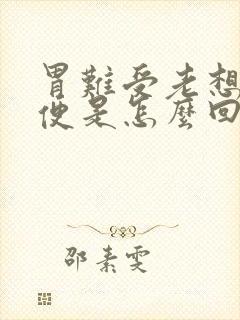 胃難受老想
便是怎麼回
邵素雯